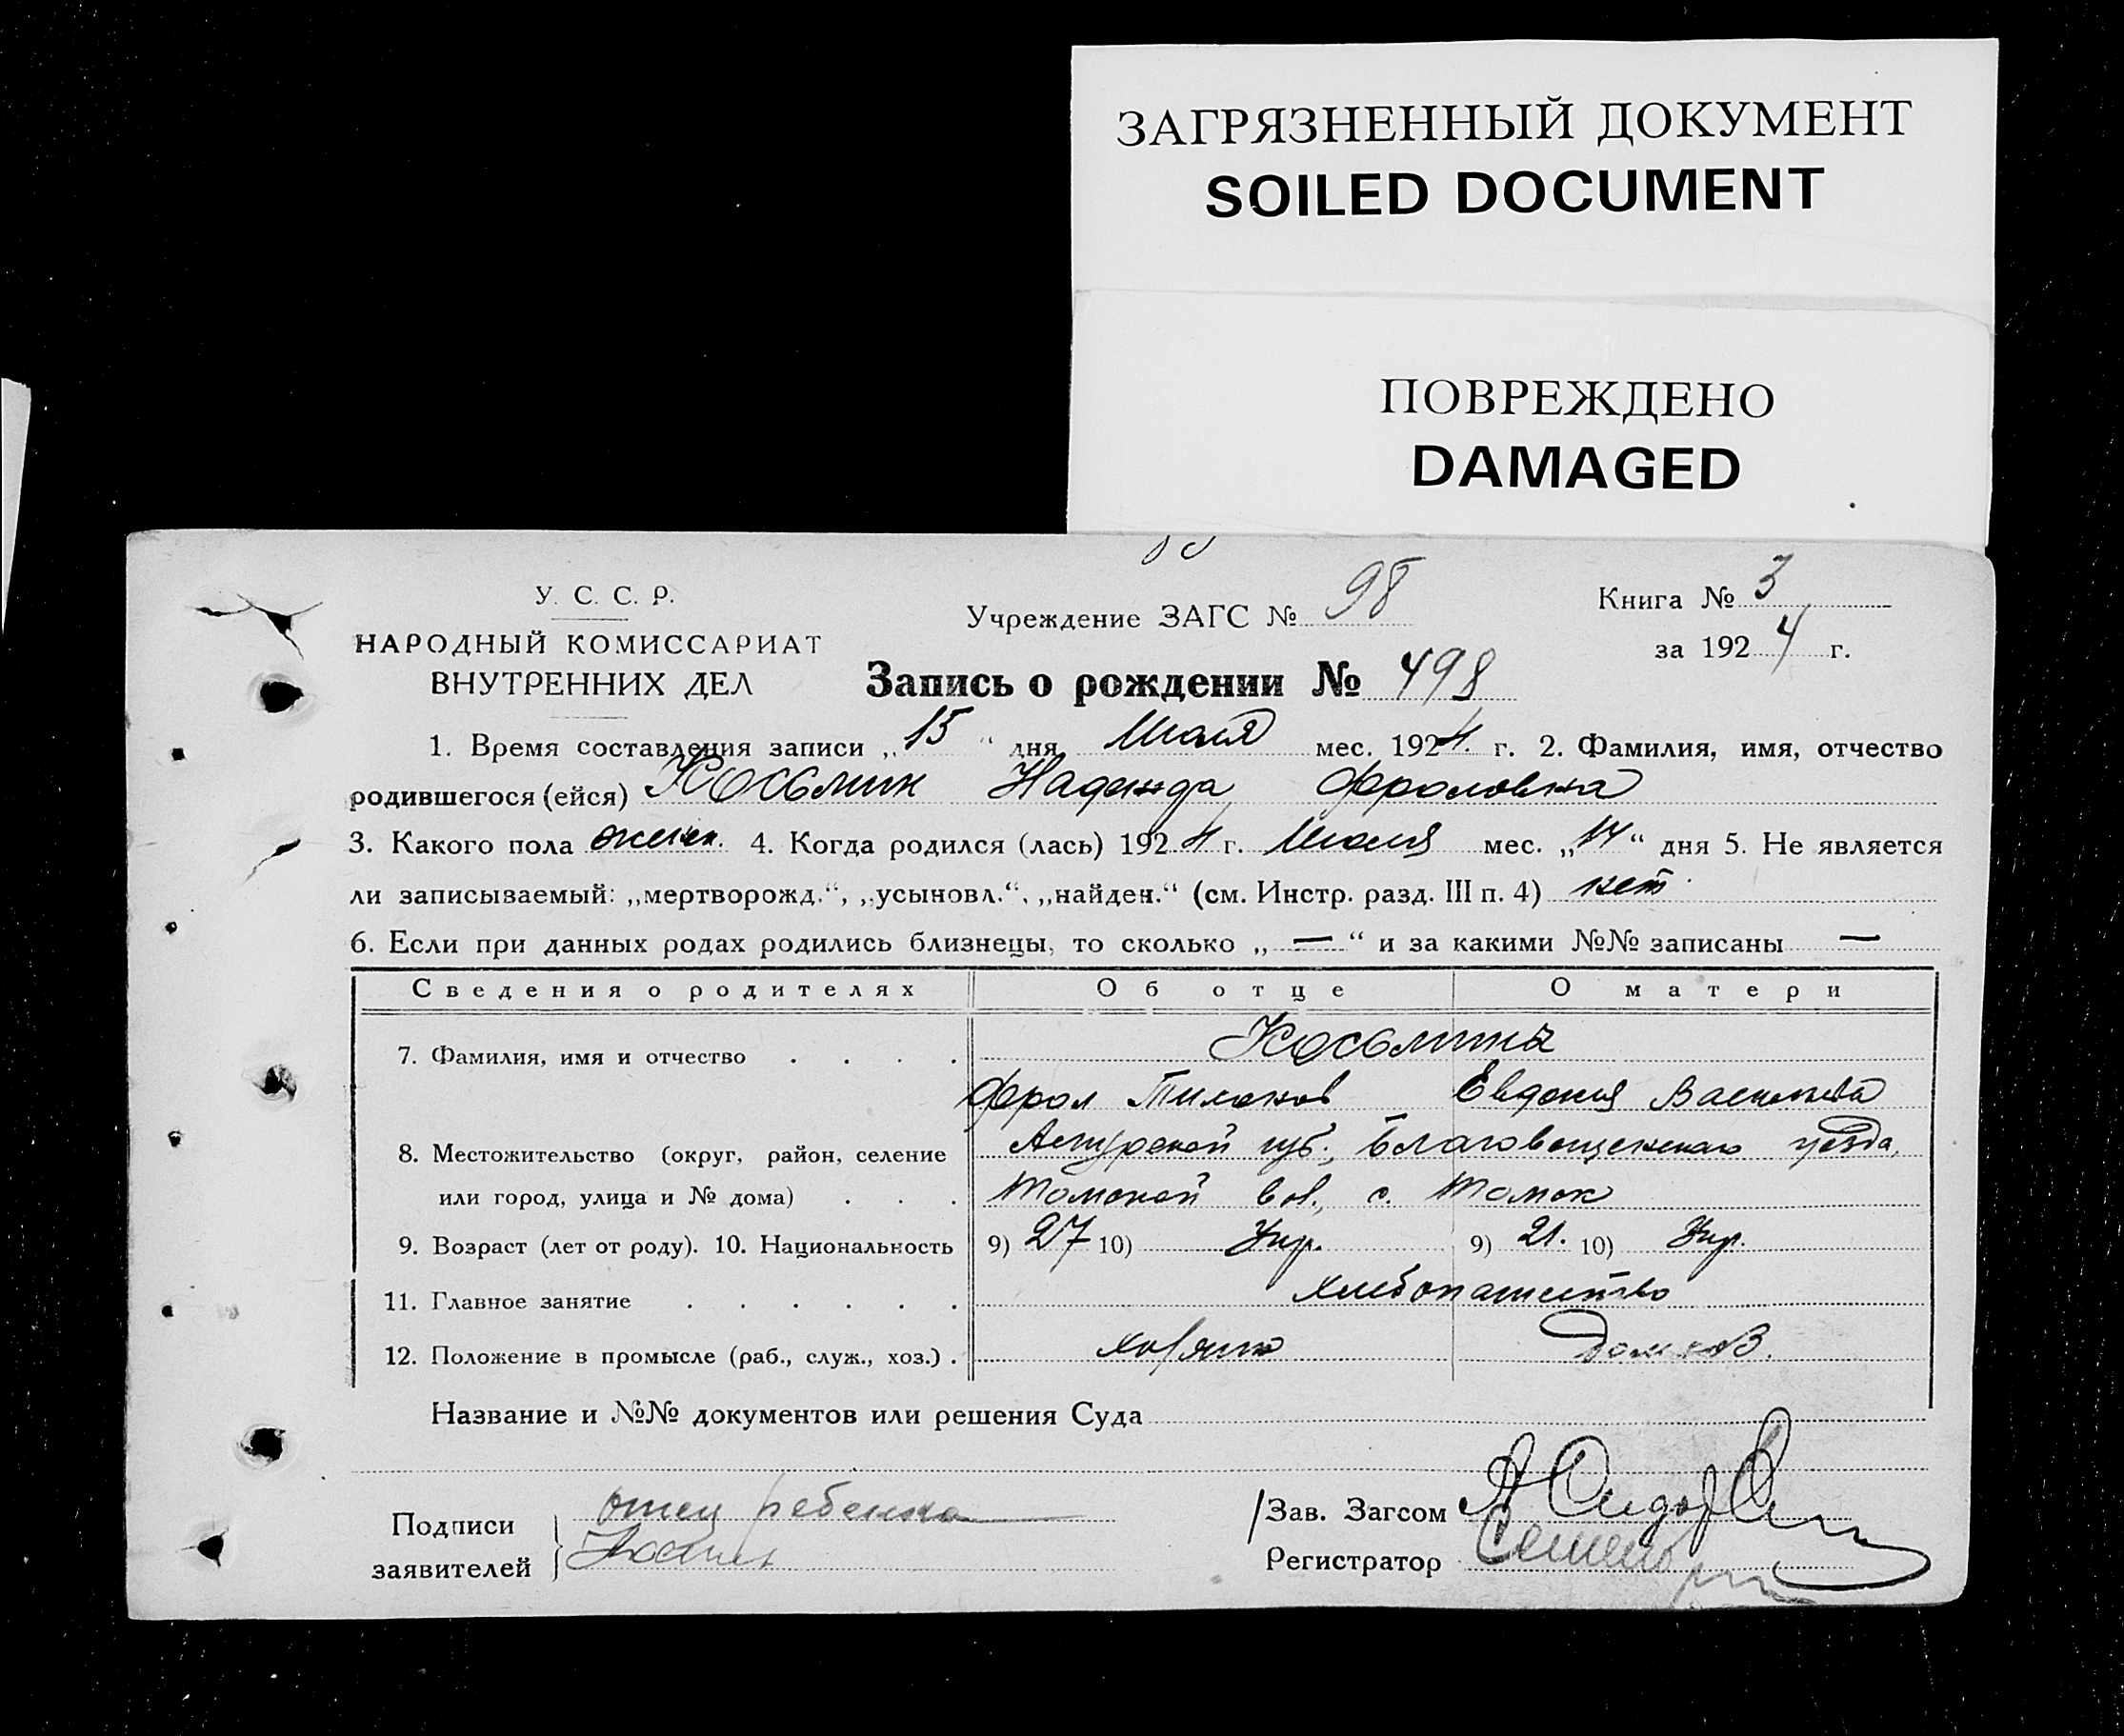 ЗАГРЯЗНЕННЫЙ ДОКУМЕНТ
SOILED DOCUMENT
ПОВРЕЖДЕНО
DAMAGED
У. С. С. Р.
НАРОДНЫЙ КОМИССАРИАТ
ВНУТРЕННИХ ДЕЛ
Учреждение ЗАГС № 98
Книга № 3
за 1924 г.
Запись о рождении № 498
1. Время составления записи „15“ дня Июля мес. 1924 г. 2. Фамилия, имя, отчество
родившегося (ейся) Косьмин Надежда Фроловна
3. Какого пола женск. 4. Когда родился (лась) 1924 г. Июля мес. „14“ дня 5. Не является
ли записываемый: „мертворожд.“, „усыновл.“, „найден.“ (см. Инстр. разд. III п. 4) нет
6. Если при данных родах родились близнецы, то сколько „—“ и за какими №№ записаны —
Сведения о родителях Об отце О матери
7. Фамилия, имя и отчество . . . . Косьмины
Фрол Тихонов Евдокия Васильева
8. Местожительство (округ, район, селение Амурской губ., Благовещенского уезда,
или город, улица и № дома) . . . Томской вол., с. Томск
9. Возраст (лет от роду). 10. Национальность 9) 27 10) Укр. 9) 21. 10) Укр.
11. Главное занятие . . . . . . хлебопашество
12. Положение в промысле (раб., служ., хоз.) . хозяин домхоз.
Название и №№ документов или решения Суда
Подписи отец ребенка
заявителей
Зав. Загсом
Регистратор